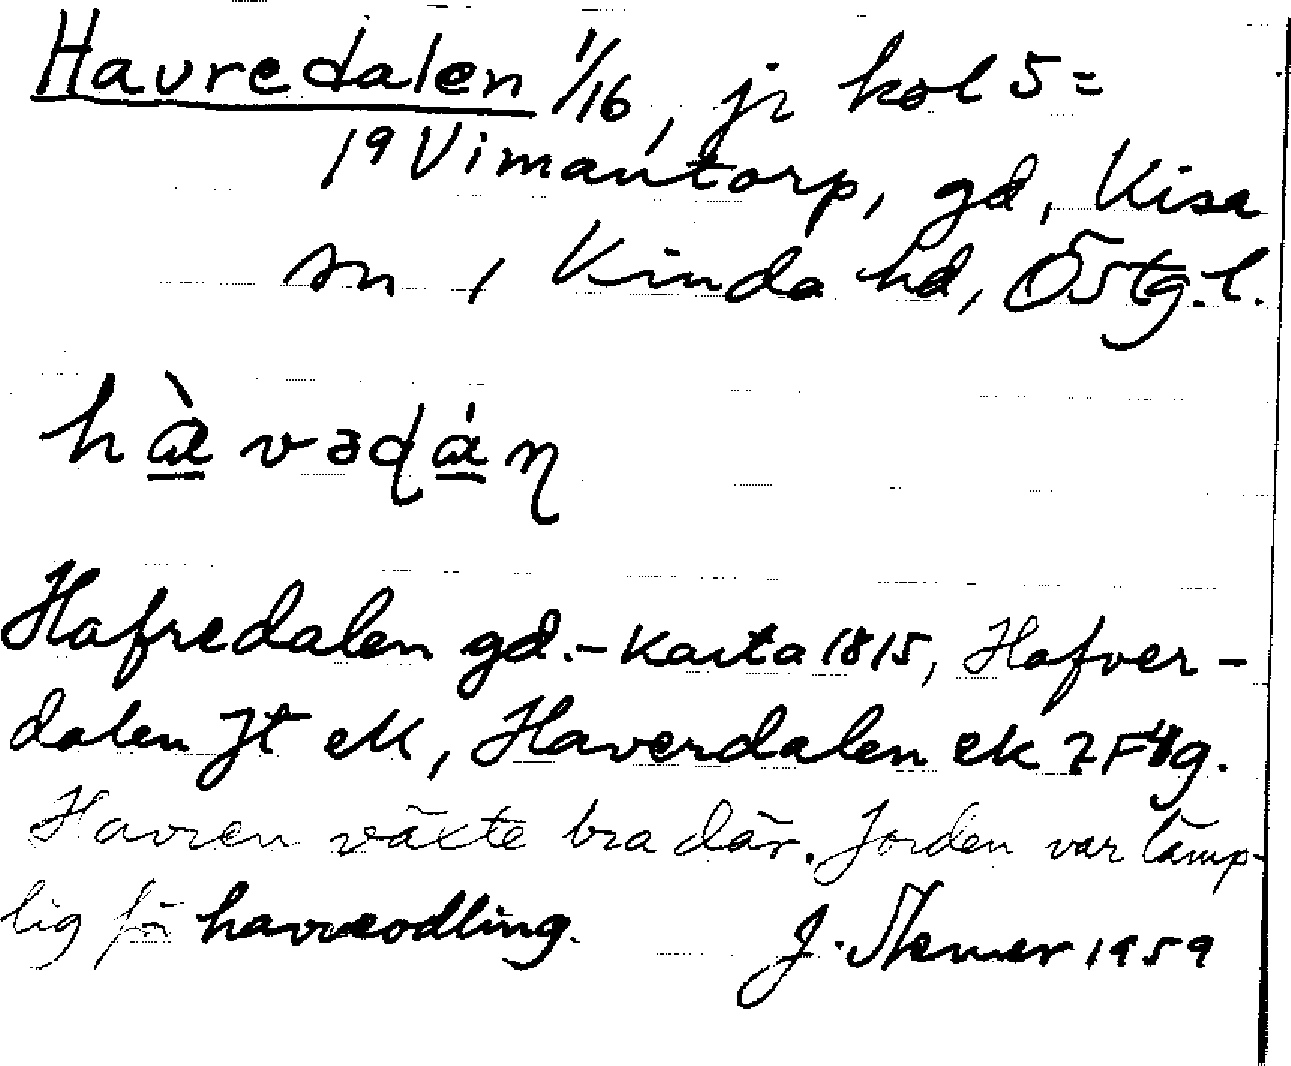 Havredalen 1/16, jr kol 5 =
19 Vimantorp, gd, Kisa
sn, Kinda hd, Östg. l.
hà̱vədá̱ɳ
Hafredalen gd.- Karta 1815, Hafver-
dalen Jt ek, Haverdalen ek
Havren växte bra där. Jorden var lämp-
lig för havreodling. J. Nemer 1959